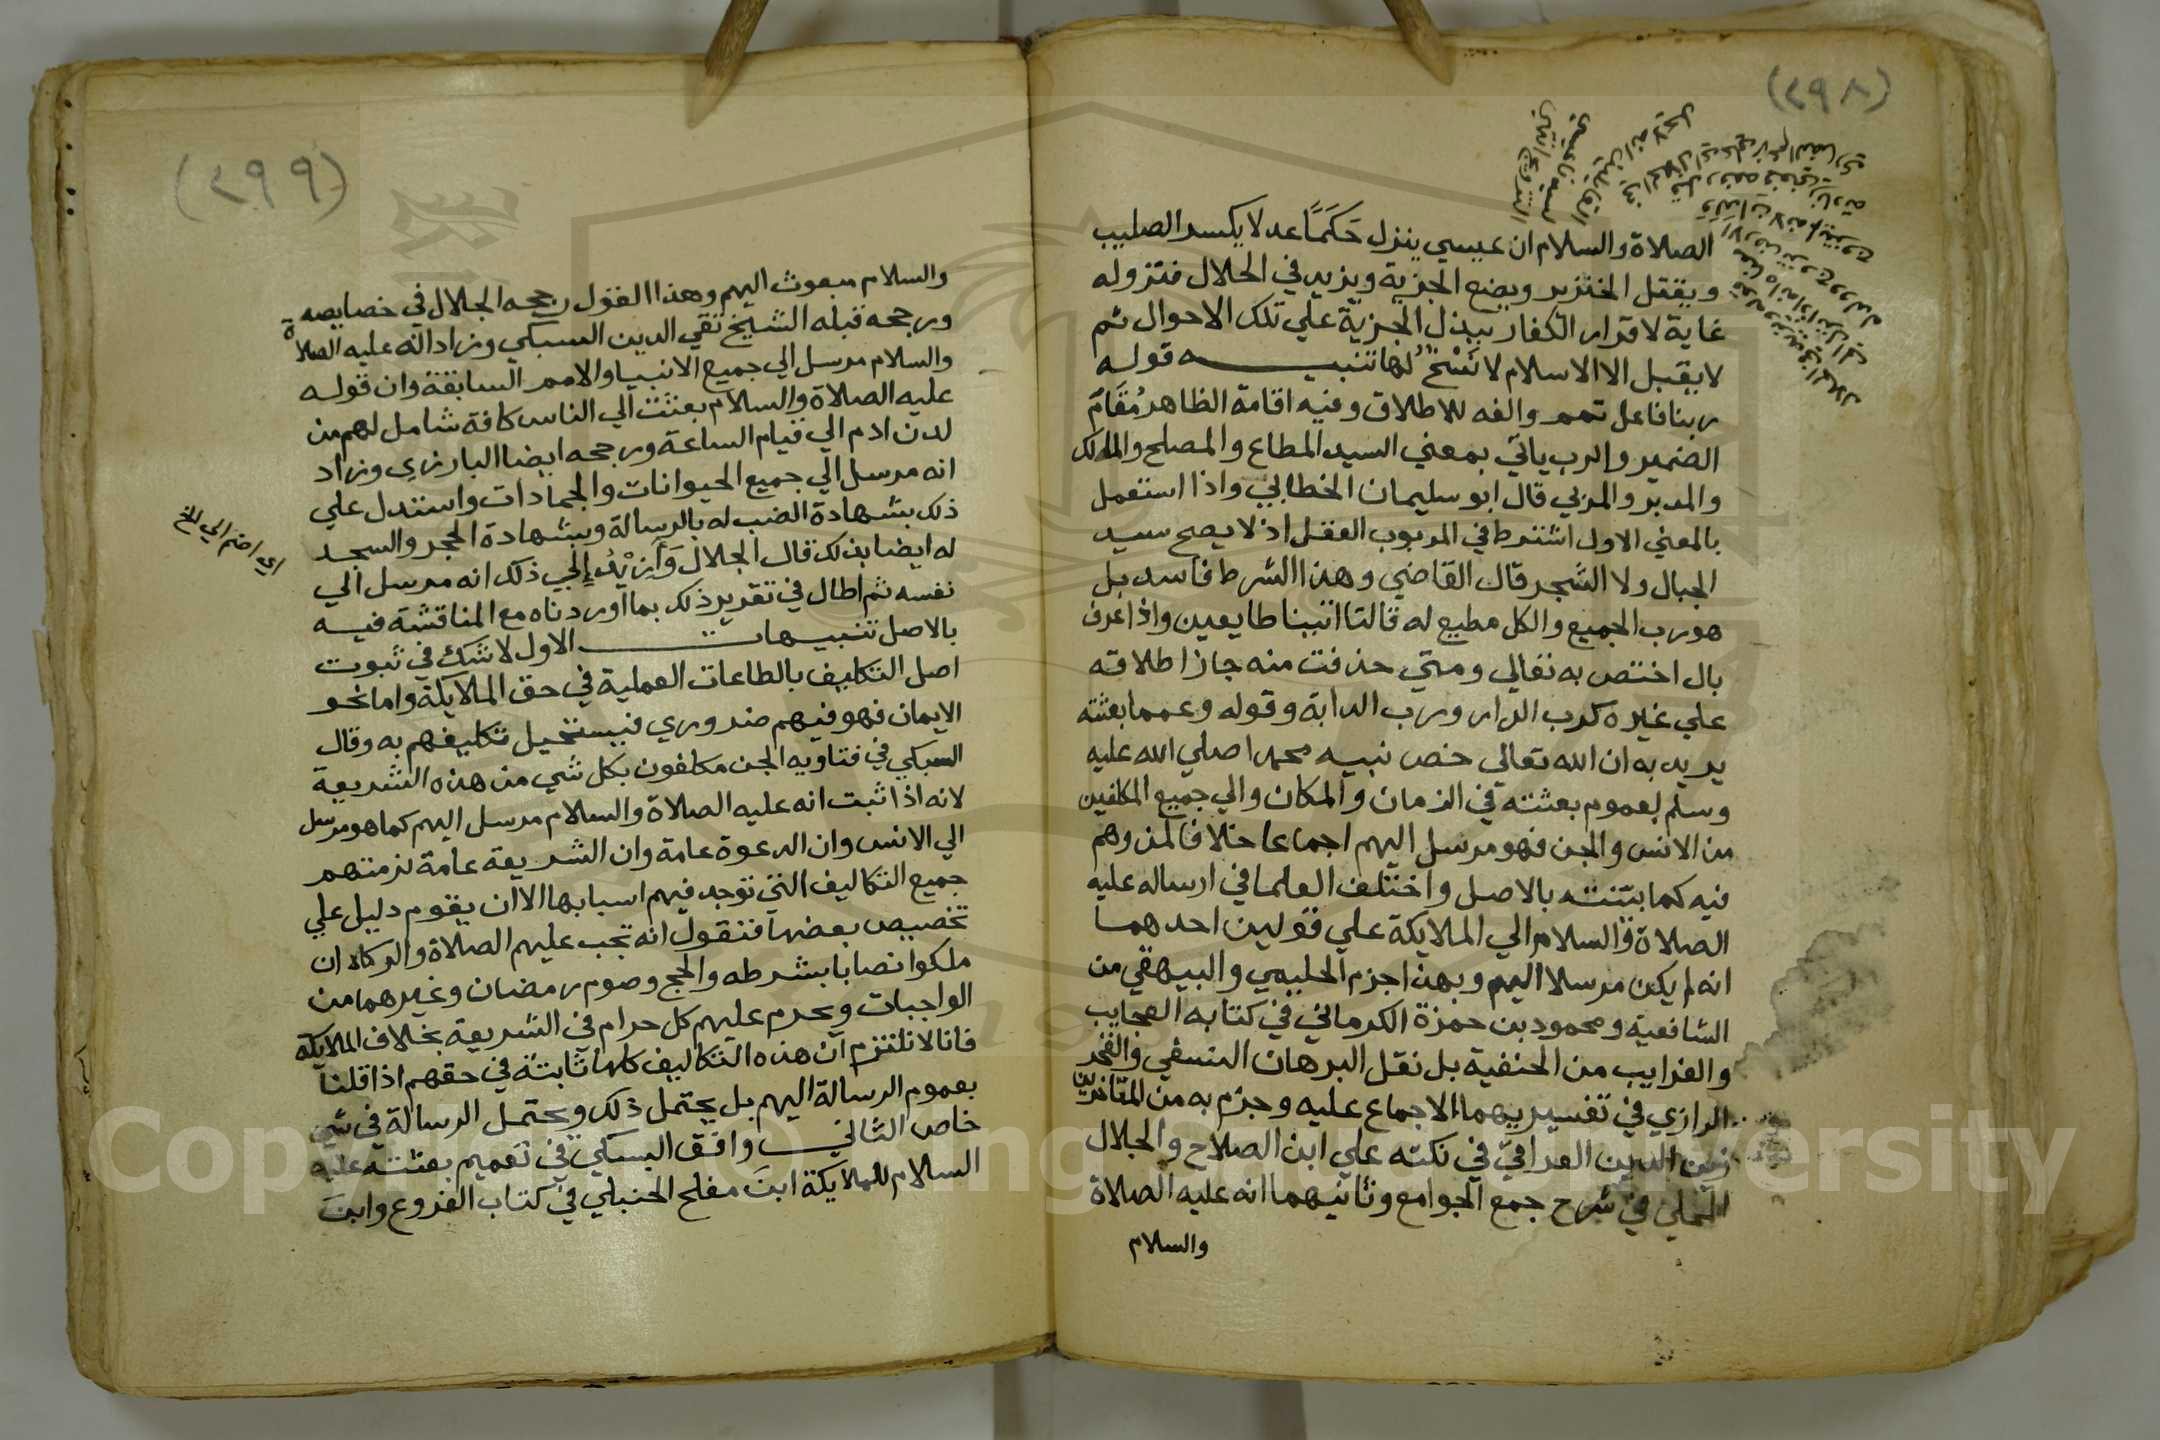 (٢٩٨)
الصلاة والسلام ان عيسي ينزل حَكَمًا عدلا يكسر الصليب
ويقتل الخنزير ويضع الجزية ويزيد في الحلال فنزوله
غاية لاقرار الكفار ببذل الجزية علي تلك الاحوال ثم
لا يقبل الا الاسلام لا نَسْخٌ لها تنبيه قوله
ربنا فاعل تمم والفه للاطلاق وفيه اقامة الظاهر مُقَامَ
الضمير والرب ياتي بمعني السيد المطاع والمصلح والمالك
والمدبر والمربي قال ابو سليمان الخطابي واذا استعمل
بالمعني الاول اشترط في المربوب العقل اذ لا يصح سيد
الجبال ولا الشجر قال القاضي وهذا الشرط فاسد بل
هو رب الجميع والكل مطيع له قالتا اتينا طايعين واذا عرف
بال اختص به تعالي ومتي حذفت منه جاز اطلاقه
علي غيره كرب الدار ورب الدابة وقوله وعمما بعثته
يريد به ان الله تعالي خص نبيه محمدا صلي الله عليه
وسلم بعموم بعثته في الزمان والمكان والي جميع المكلفين
من الانس والجن فهو مرسل اليهم اجماعا خلافا لمن وهم
فيه كما بيّنته بالاصل واختلف العلما في ارساله عليه
الصلاة والسلام الي الملايكة علي قولين احدهما
انه لم يكن مرسلا اليهم وبهذا جزم الحليمي والبيهقي من
الشافعية ومحمود بن حمزة الكرماني في كتابه العجايب
والغرايب من الحنفية بل نقل البرهان النسفي والفخر
الرازي في تفسيريهما الاجماع عليه وجزم به من المتاخرين
زين الدين العراقي في نكته علي ابن الصلاح والجلال
المحلي في شرح جمع الجوامع وثانيهما انه عليه الصلاة
والسلام
(٢٩٩)
والسلام مبعوث اليهم وهذا القول رجحه الجلال في خصايصه
ورجحه قبله الشيخ تقي الدين السبكي وزاد انه عليه الصلاة
والسلام مرسل الي جميع الانبيا والامم السابقة وان قوله
عليه الصلاة والسلام بعثت الي الناس كافة شامل لهم من
لدن ادم الي قيام الساعة ورجحه ايضا البارزي وزاد
انه مرسل الي جميع الحيوانات والجمادات واستدل علي
ذلك بشهادة الضب له بالرسالة وبشهادة الحجر والشجر
له ايضا بذلك قال الجلال وَأَزِيْدُ إلي ذلك انه مرسل الي
نفسه ثم اطال في تقرير ذلك بما اوردناه مع المناقشة فيه
بالاصل تنبيهات الاول لا شك في ثبوت
اصل التكليف بالطاعات العملية في حق الملايكة واما نحو
الايمان فهو فيهم ضروري فيستحيل تكليفهم به وقال
السبكي في فتاويه الجن مكلفون بكل شي من هذه الشريعة
لانه اذا ثبت انه عليه الصلاة والسلام مرسل اليهم كما هو مرسل
الي الانس وان الدعوة عامة وان الشريعة عامة لزمتهم
جميع التكاليف التي توجد فيهم اسبابها الا ان يقوم دليل علي
تخصيص بعضها فنقول انه تجب عليهم الصلاة والزكاة ان
ملكوا نصابا بشرطه والحج وصوم رمضان وغيرهما من
الواجبات ويحرم عليهم كل حرام في الشريعة بخلاف الملايكة
فانا لا نلتزم ان هذه التكاليف كلها ثابتة في حقهم اذا قلنا
بعموم الرسالة اليهم بل يحتمل ذلك ويحتمل الرسالة في شي
خاص الثاني وافق السبكي في تعميم بعثته عليه
السلام للملايكة ابن مفلح الحنبلي في كتاب الفروع وابن
اي اضم الي
Copyright © King Saud University